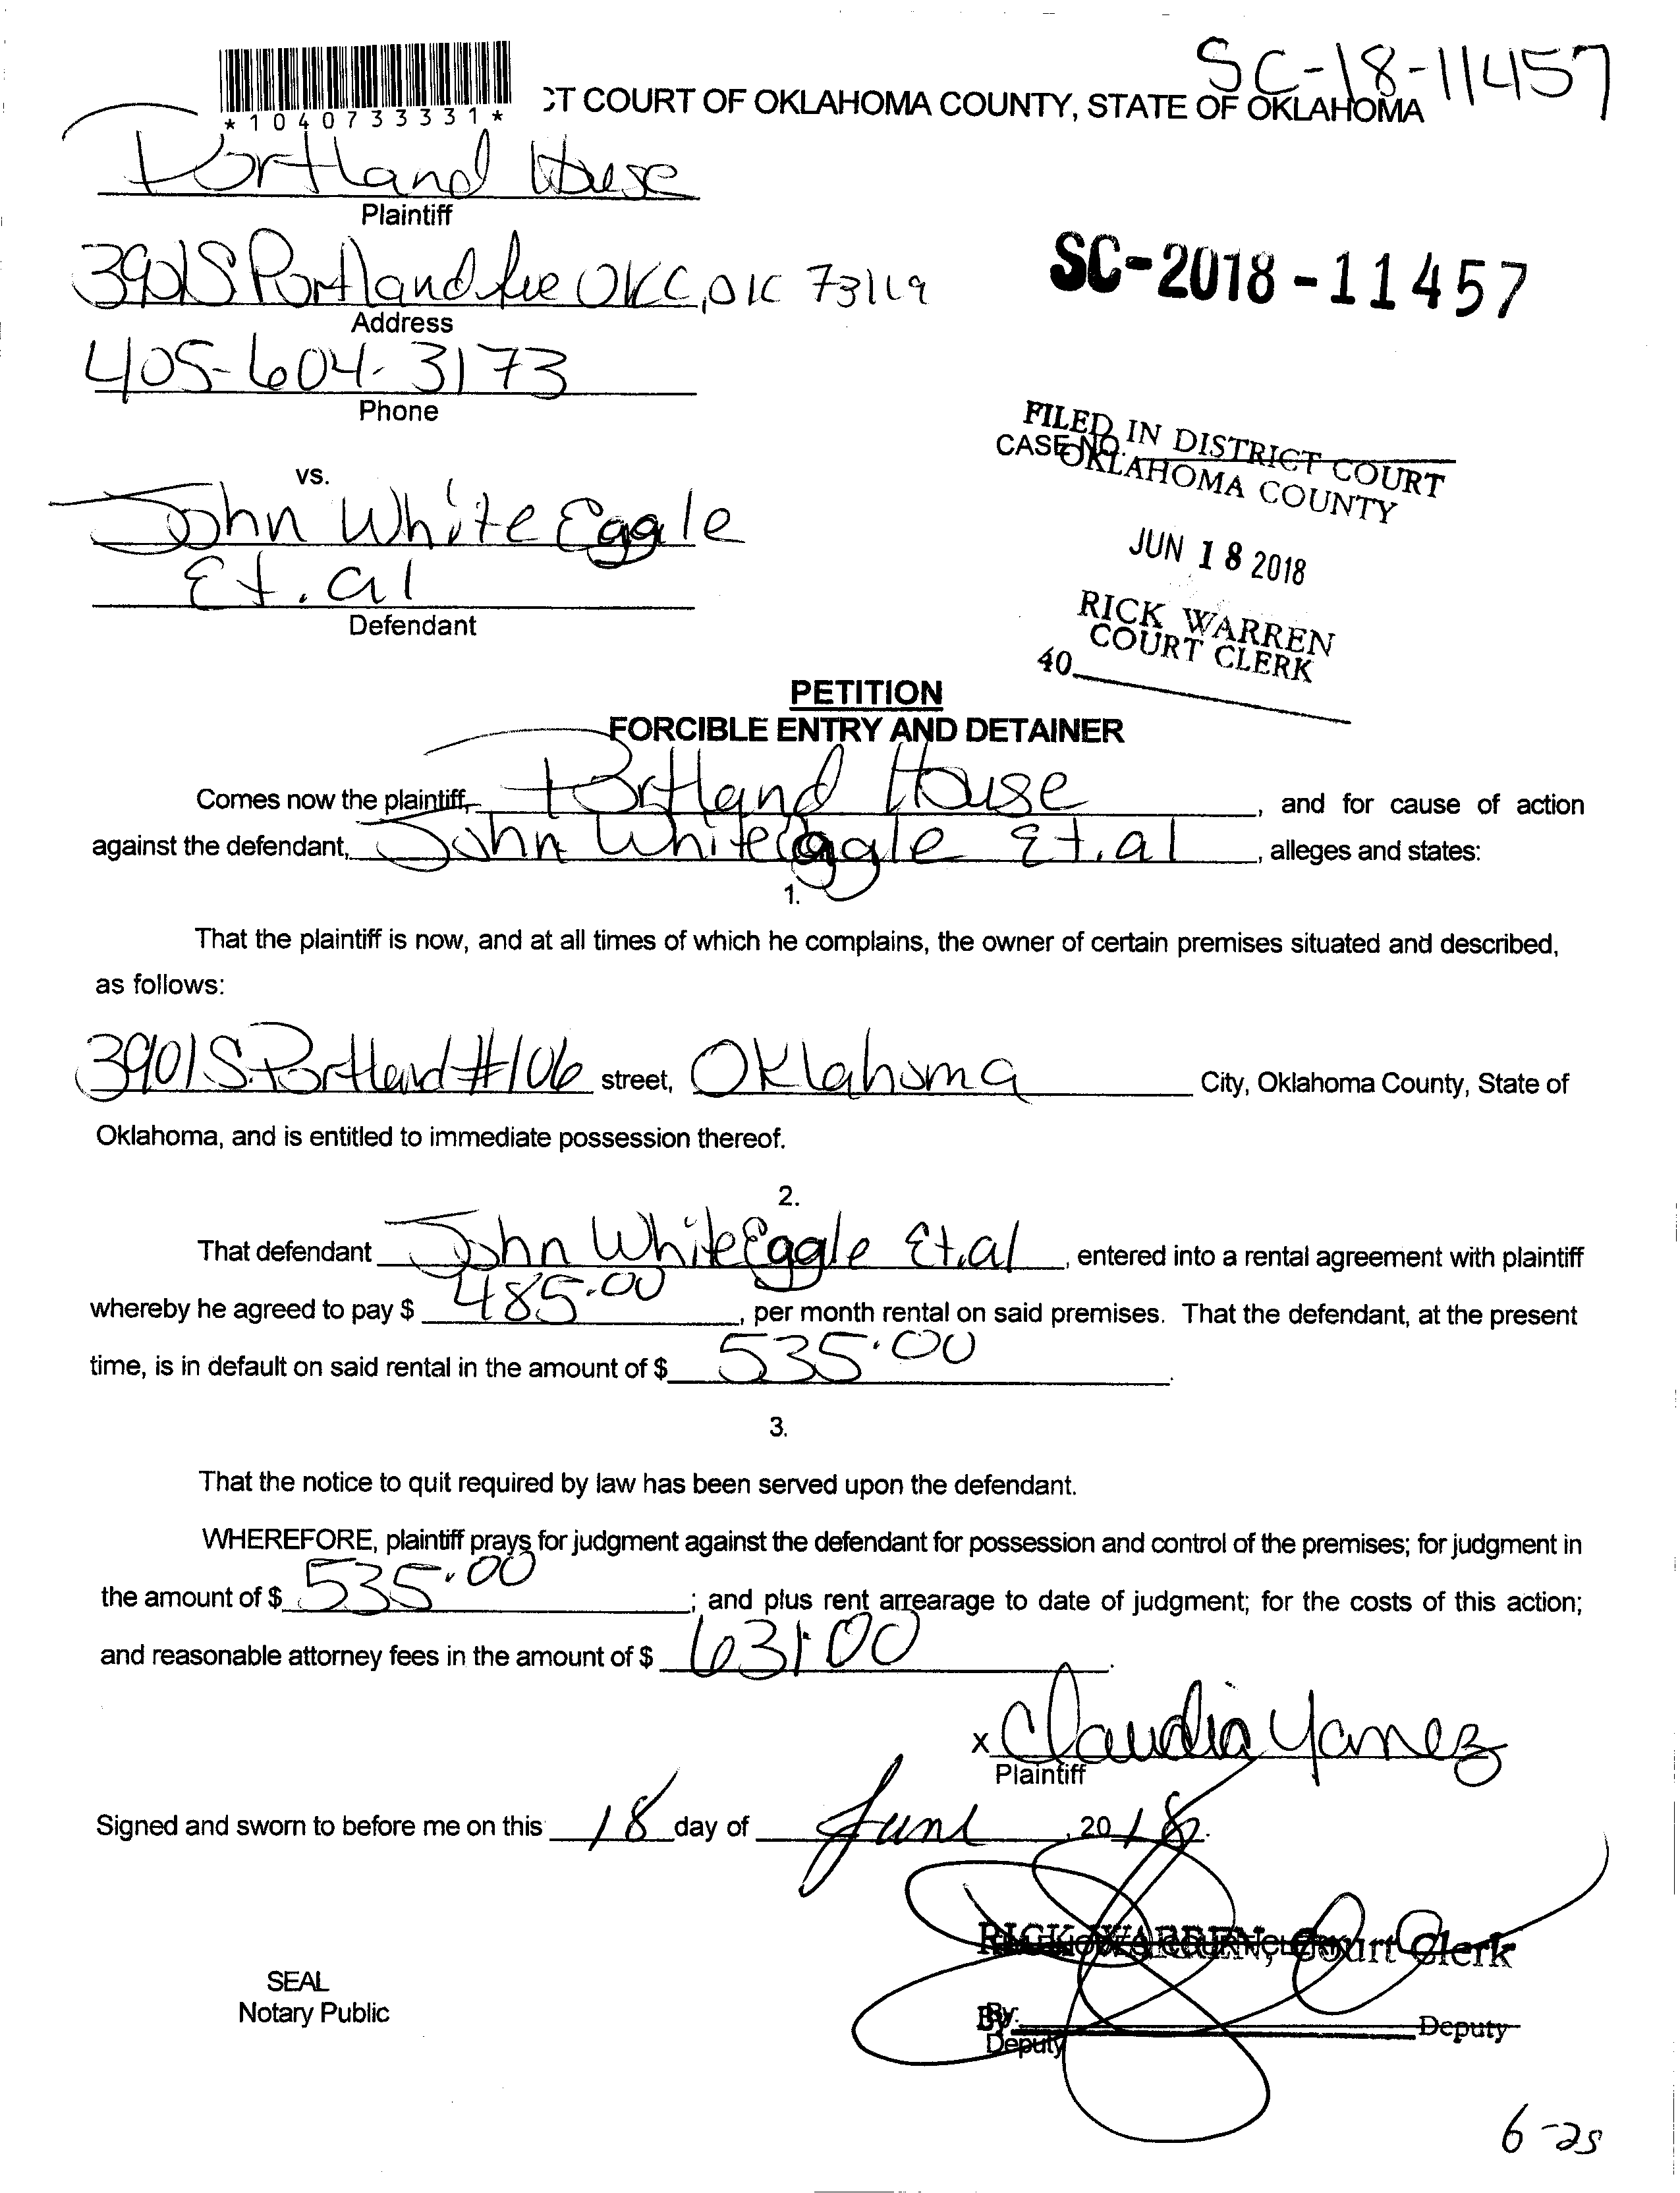 SC-18-11457
*1040733331*
CT COURT OF OKLAHOMA COUNTY, STATE OF OKLAHOMA
Portland House
Plaintiff
3901 S Portland Ave OKC, OK 73119
Address
SC-2018-11457
405-604-3173
Phone
FILED IN DISTRICT COURT
OKLAHOMA COUNTY
CASE NO.
JUN 18 2018
RICK WARREN
COURT CLERK
40
vs.
John White Eagle
Et. al
Defendant
PETITION
FORCIBLE ENTRY AND DETAINER
Comes now the plaintiff, Portland House, and for cause of action
against the defendant, John White Eagle Et. al, alleges and states:
1.
That the plaintiff is now, and at all times of which he complains, the owner of certain premises situated and described,
as follows:
3901 S. Portland #106 street, Oklahoma City, Oklahoma County, State of
Oklahoma, and is entitled to immediate possession thereof.
2.
That defendant John White Eagle Et. al, entered into a rental agreement with plaintiff
whereby he agreed to pay $ 485.00, per month rental on said premises. That the defendant, at the present
time, is in default on said rental in the amount of $ 535.00.
3.
That the notice to quit required by law has been served upon the defendant.
WHEREFORE, plaintiff prays for judgment against the defendant for possession and control of the premises; for judgment in
the amount of $ 535.00; and plus rent arrearage to date of judgment; for the costs of this action;
and reasonable attorney fees in the amount of $ 631.00.
x Claudia Yanez
Plaintiff
Signed and sworn to before me on this 18 day of June, 2018.
RICK WARREN, Court Clerk
SEAL
Notary Public
By: Deputy
By Deputy
6-25